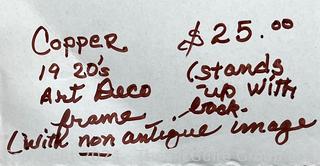 Copper $25.00
1920's (stands
Art Deco up with
frame back.
(with non antique image